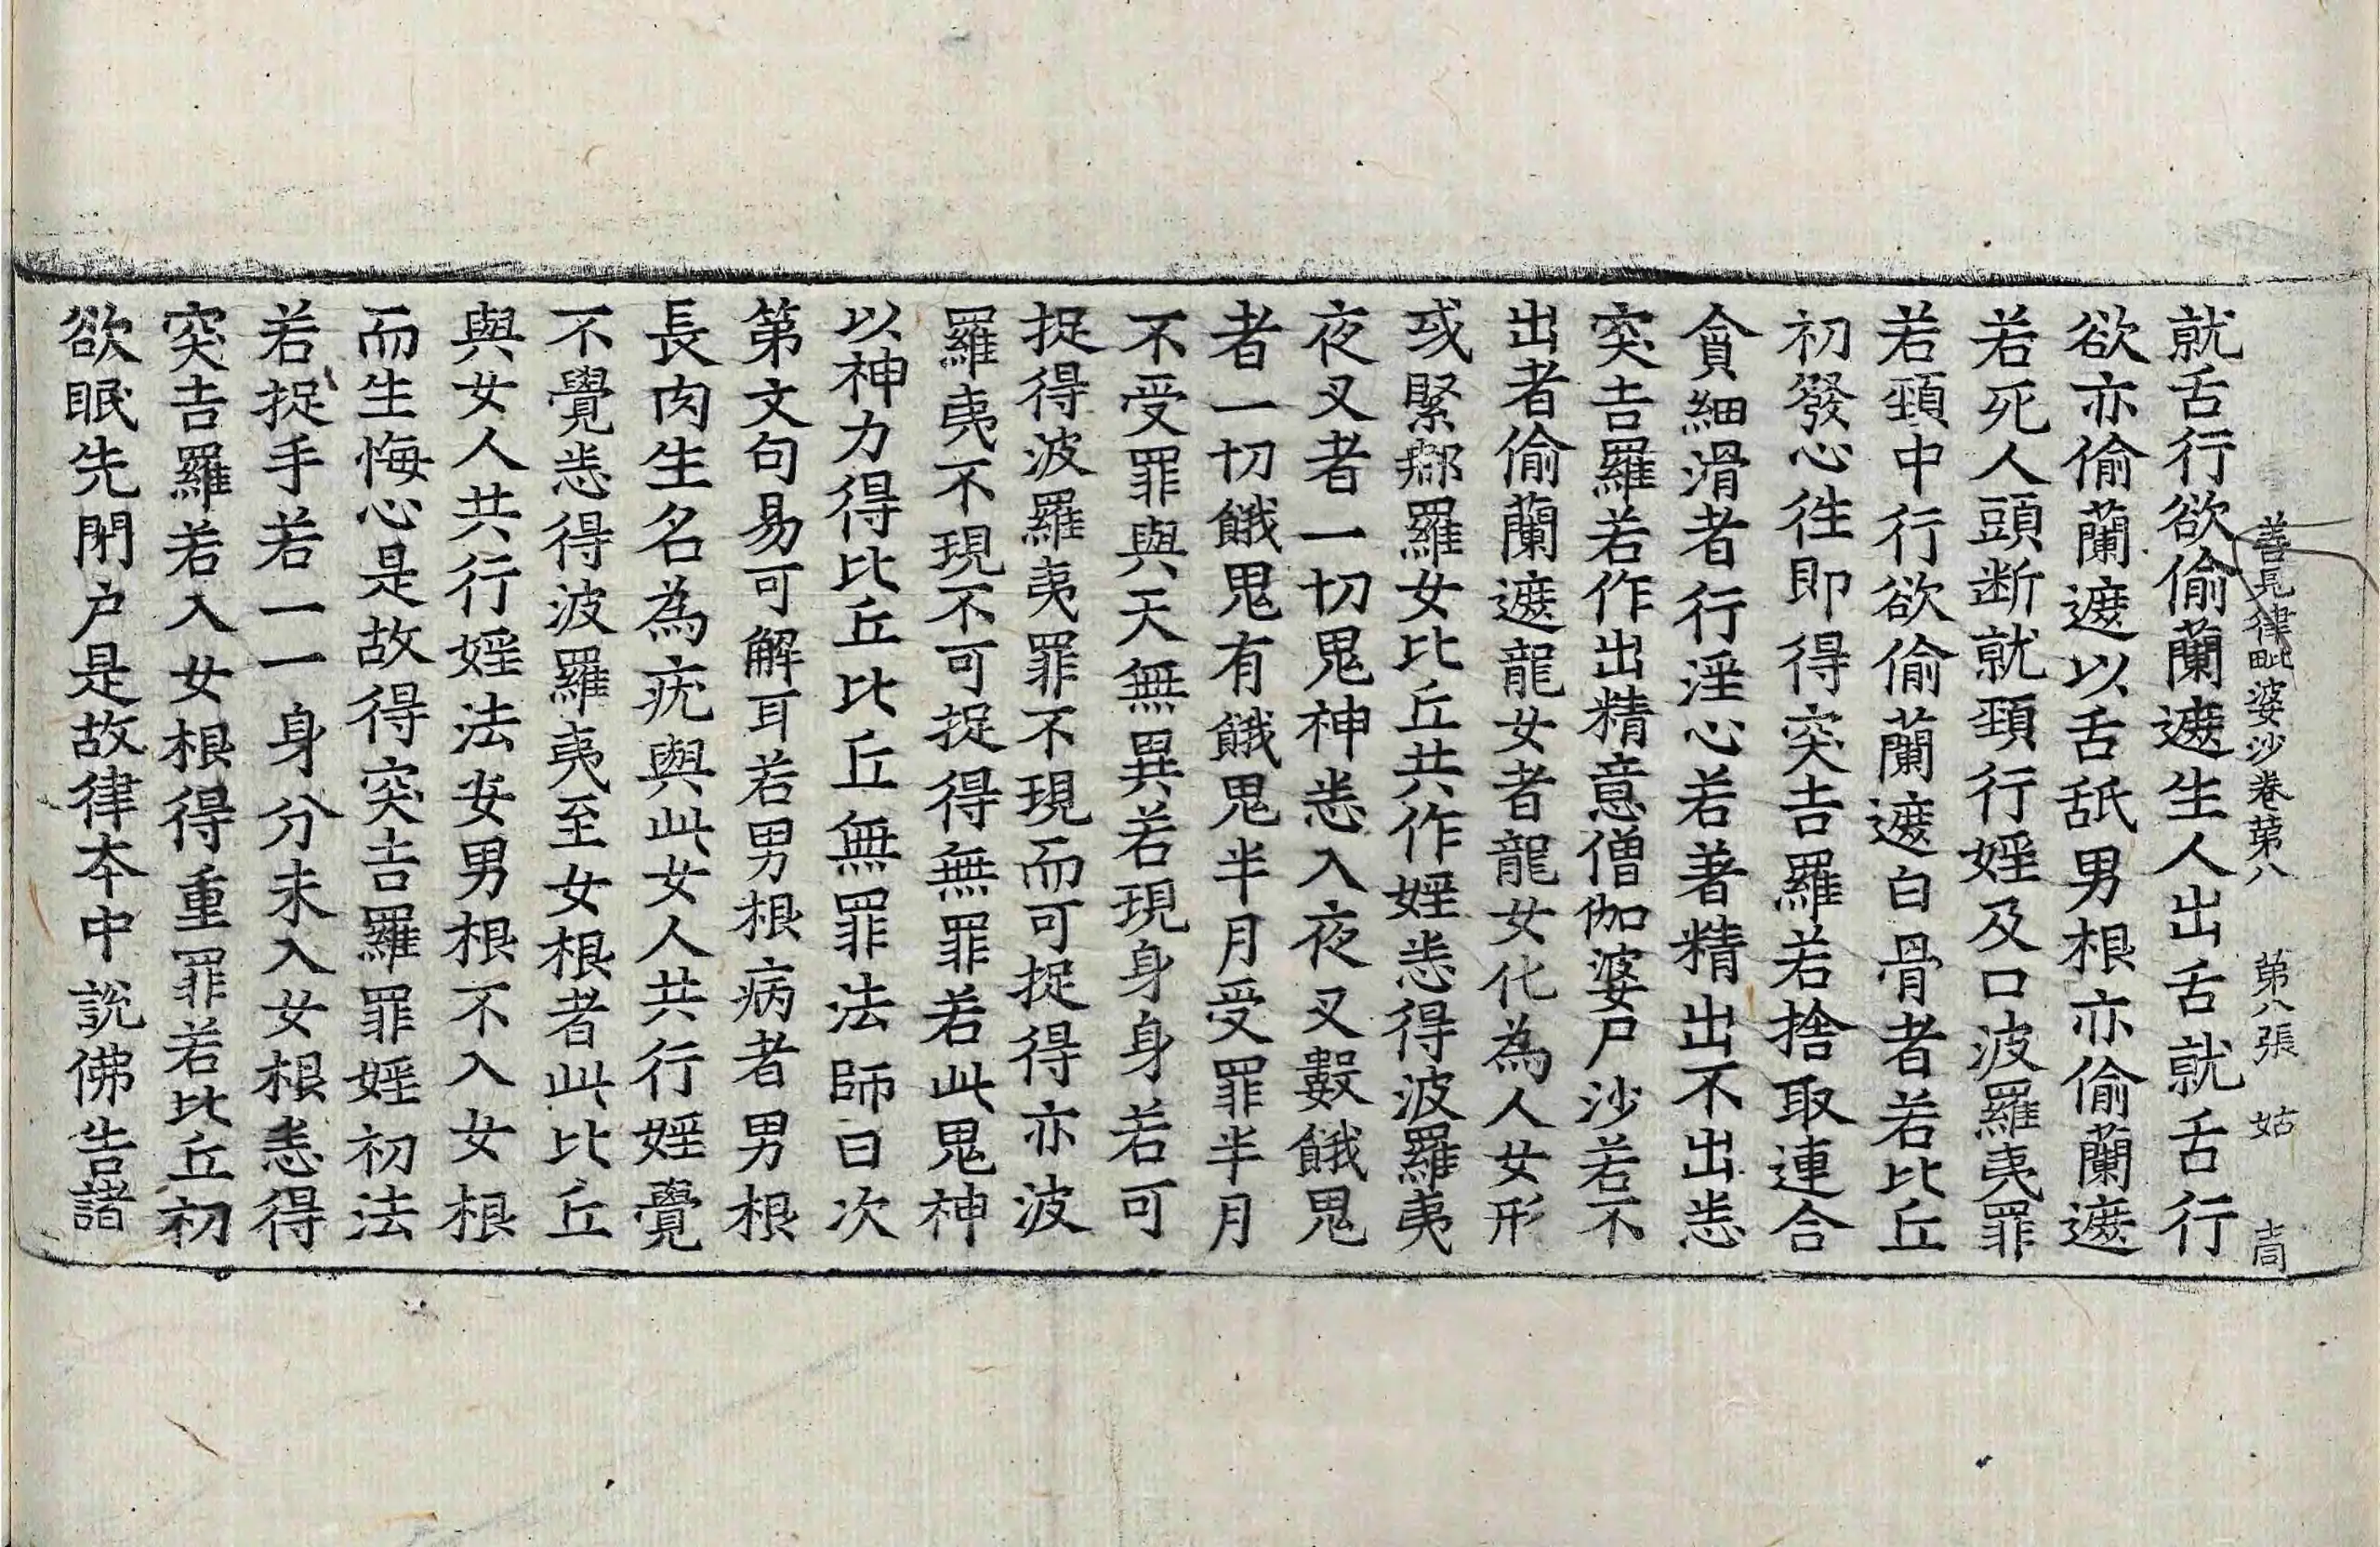 善見律毗婆沙卷第八 第八張 姑
就舌行欲偷蘭遮生人出舌就舌行
欲亦偷蘭遮以舌舐男根亦偷蘭遮
若死人頭断就頚行婬及口波羅夷罪
若頚中行欲偷蘭遮白骨者若比丘
初發心往即得突吉羅若捨取連合
貪細滑者行淫心若著精出不出悉
突吉羅若作出精意僧伽婆尸沙若不
出者偷蘭遮龍女者龍女化為人女形
或緊那羅女比丘共作婬悉得波羅夷
夜叉者一切鬼神悉入夜叉數餓鬼
者一切餓鬼有餓鬼半月受罪半月
不受罪與天無異若現身身若可
捉得波羅夷罪不現而可捉得亦波
羅夷不現不可捉得無罪若此鬼神
以神力得比丘比丘無罪法師曰次
第文句易可解耳若男根病者男根
長肉生名為疣與此女人共行婬覺
不覺悉得波羅夷至女根者此比丘
與女人共行婬法安男根不入女根
而生悔心是故得突吉羅罪婬初法
若捉手若一一身分未入女根悉得
突吉羅若入女根得重罪若比丘初
欲眠先閇户是故律本中說佛告諸